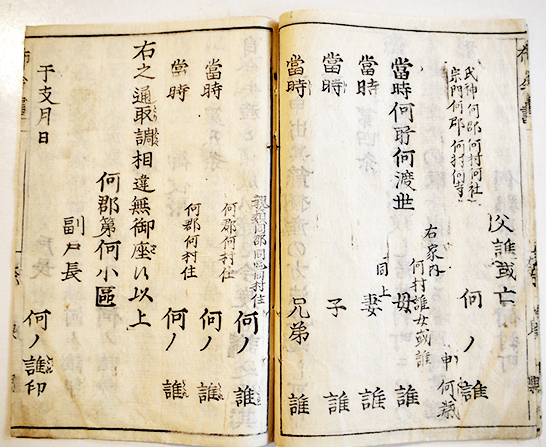 父誰或亡
何ノ誰
申何歳
氏神何郡何村何社
宗門何郡何村何寺
右家内
何村誰女或誰
當時何所何渡世 母 誰
同上
當時 妻 誰
當時 子 誰
當時 兄弟 誰
親類同郡同區何村住
何ノ誰
何郡何村住
當時 何ノ誰
何郡何村住
當時 何ノ誰
右之通取調相違無御座候以上
何郡第何小區
副戸長
何ノ誰印
干支月日